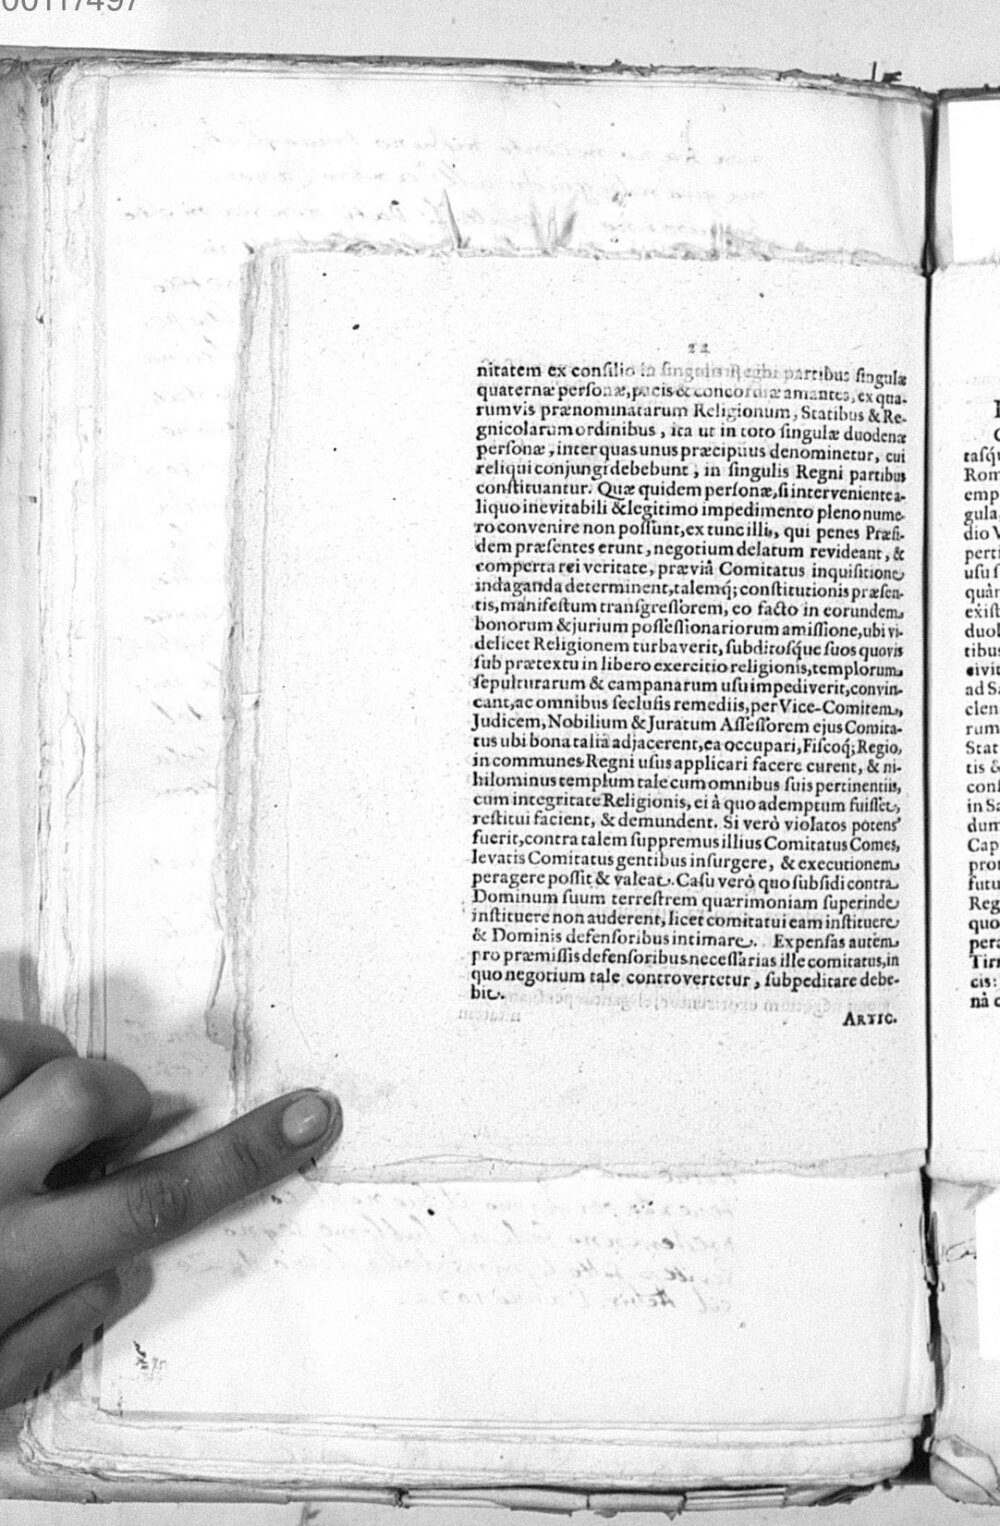 00117497
22
nitatem ex consilio in singulis Regni partibus singulæ
quaternæ personæ, pacis & concordiæ amantes, ex qua-
rumvis prænominatarum Religionum, Statibus & Re-
gnicolarum ordinibus, ita ut in toto singulæ duodenæ
personæ, inter quas unus præcipuus denominetur, cui
reliqui conjungi debebunt, in singulis Regni partibus
constituantur. Quæ quidem personæ, si interveniente a-
liquo inevitabili & legitimo impedimento pleno nume-
ro convenire non possunt, ex tunc illi, qui penes Præsi-
dem præsentes erunt, negotium delatum revideant, &
comperta rei veritate, prævia Comitatus inquisitione
indaganda determinent, talemq; constitutionis præsen-
tis, manifestum transgressorem, eo facto in eorundem
bonorum & jurium possessionariorum amissione, ubi vi-
delicet Religionem turbaverit, subditosque suos quovis
sub prætextu in libero exercitio religionis, templorum
sepulturarum & campanarum usu impediverit, convin-
cant, ac omnibus seclusis remediis, per Vice-Comitem,
Judicem, Nobilium & Juratum Assessorem ejus Comita-
tus ubi bona talia adjacerent, ea occupari, Fiscoq; Regio,
in communes Regni usus applicari facere curent, & ni-
hilominus templum tale cum omnibus suis pertinentiis,
cum integritate Religionis, ei à quo ademptum fuisset,
restitui facient, & demundent. Si verò violatos potens
fuerit, contra talem suppremus illius Comitatus Comes,
levatis Comitatus gentibus insurgere, & executionem
peragere possit & valeat. Casu verò quo subsidi contra
Dominum suum terrestrem quærimoniam superinde
instituere non auderent, licet comitatui eam instituere
& Dominis defensoribus intimare. Expensas autem
pro præmissis defensoribus necessarias ille comitatus, in
quo negotium tale controvertetur, subpeditare debe-
bit.
ARTIC.
tasq
Rom
emp
gula
dio V
perti
usu s
quàn
exist
duol
tibus
civit
ad Sa
clen
rum
Stat
tis &
cons
in Sa
dum
Cap
pror
futu
Reg
quo
pera
Tirn
cis:
nâ c